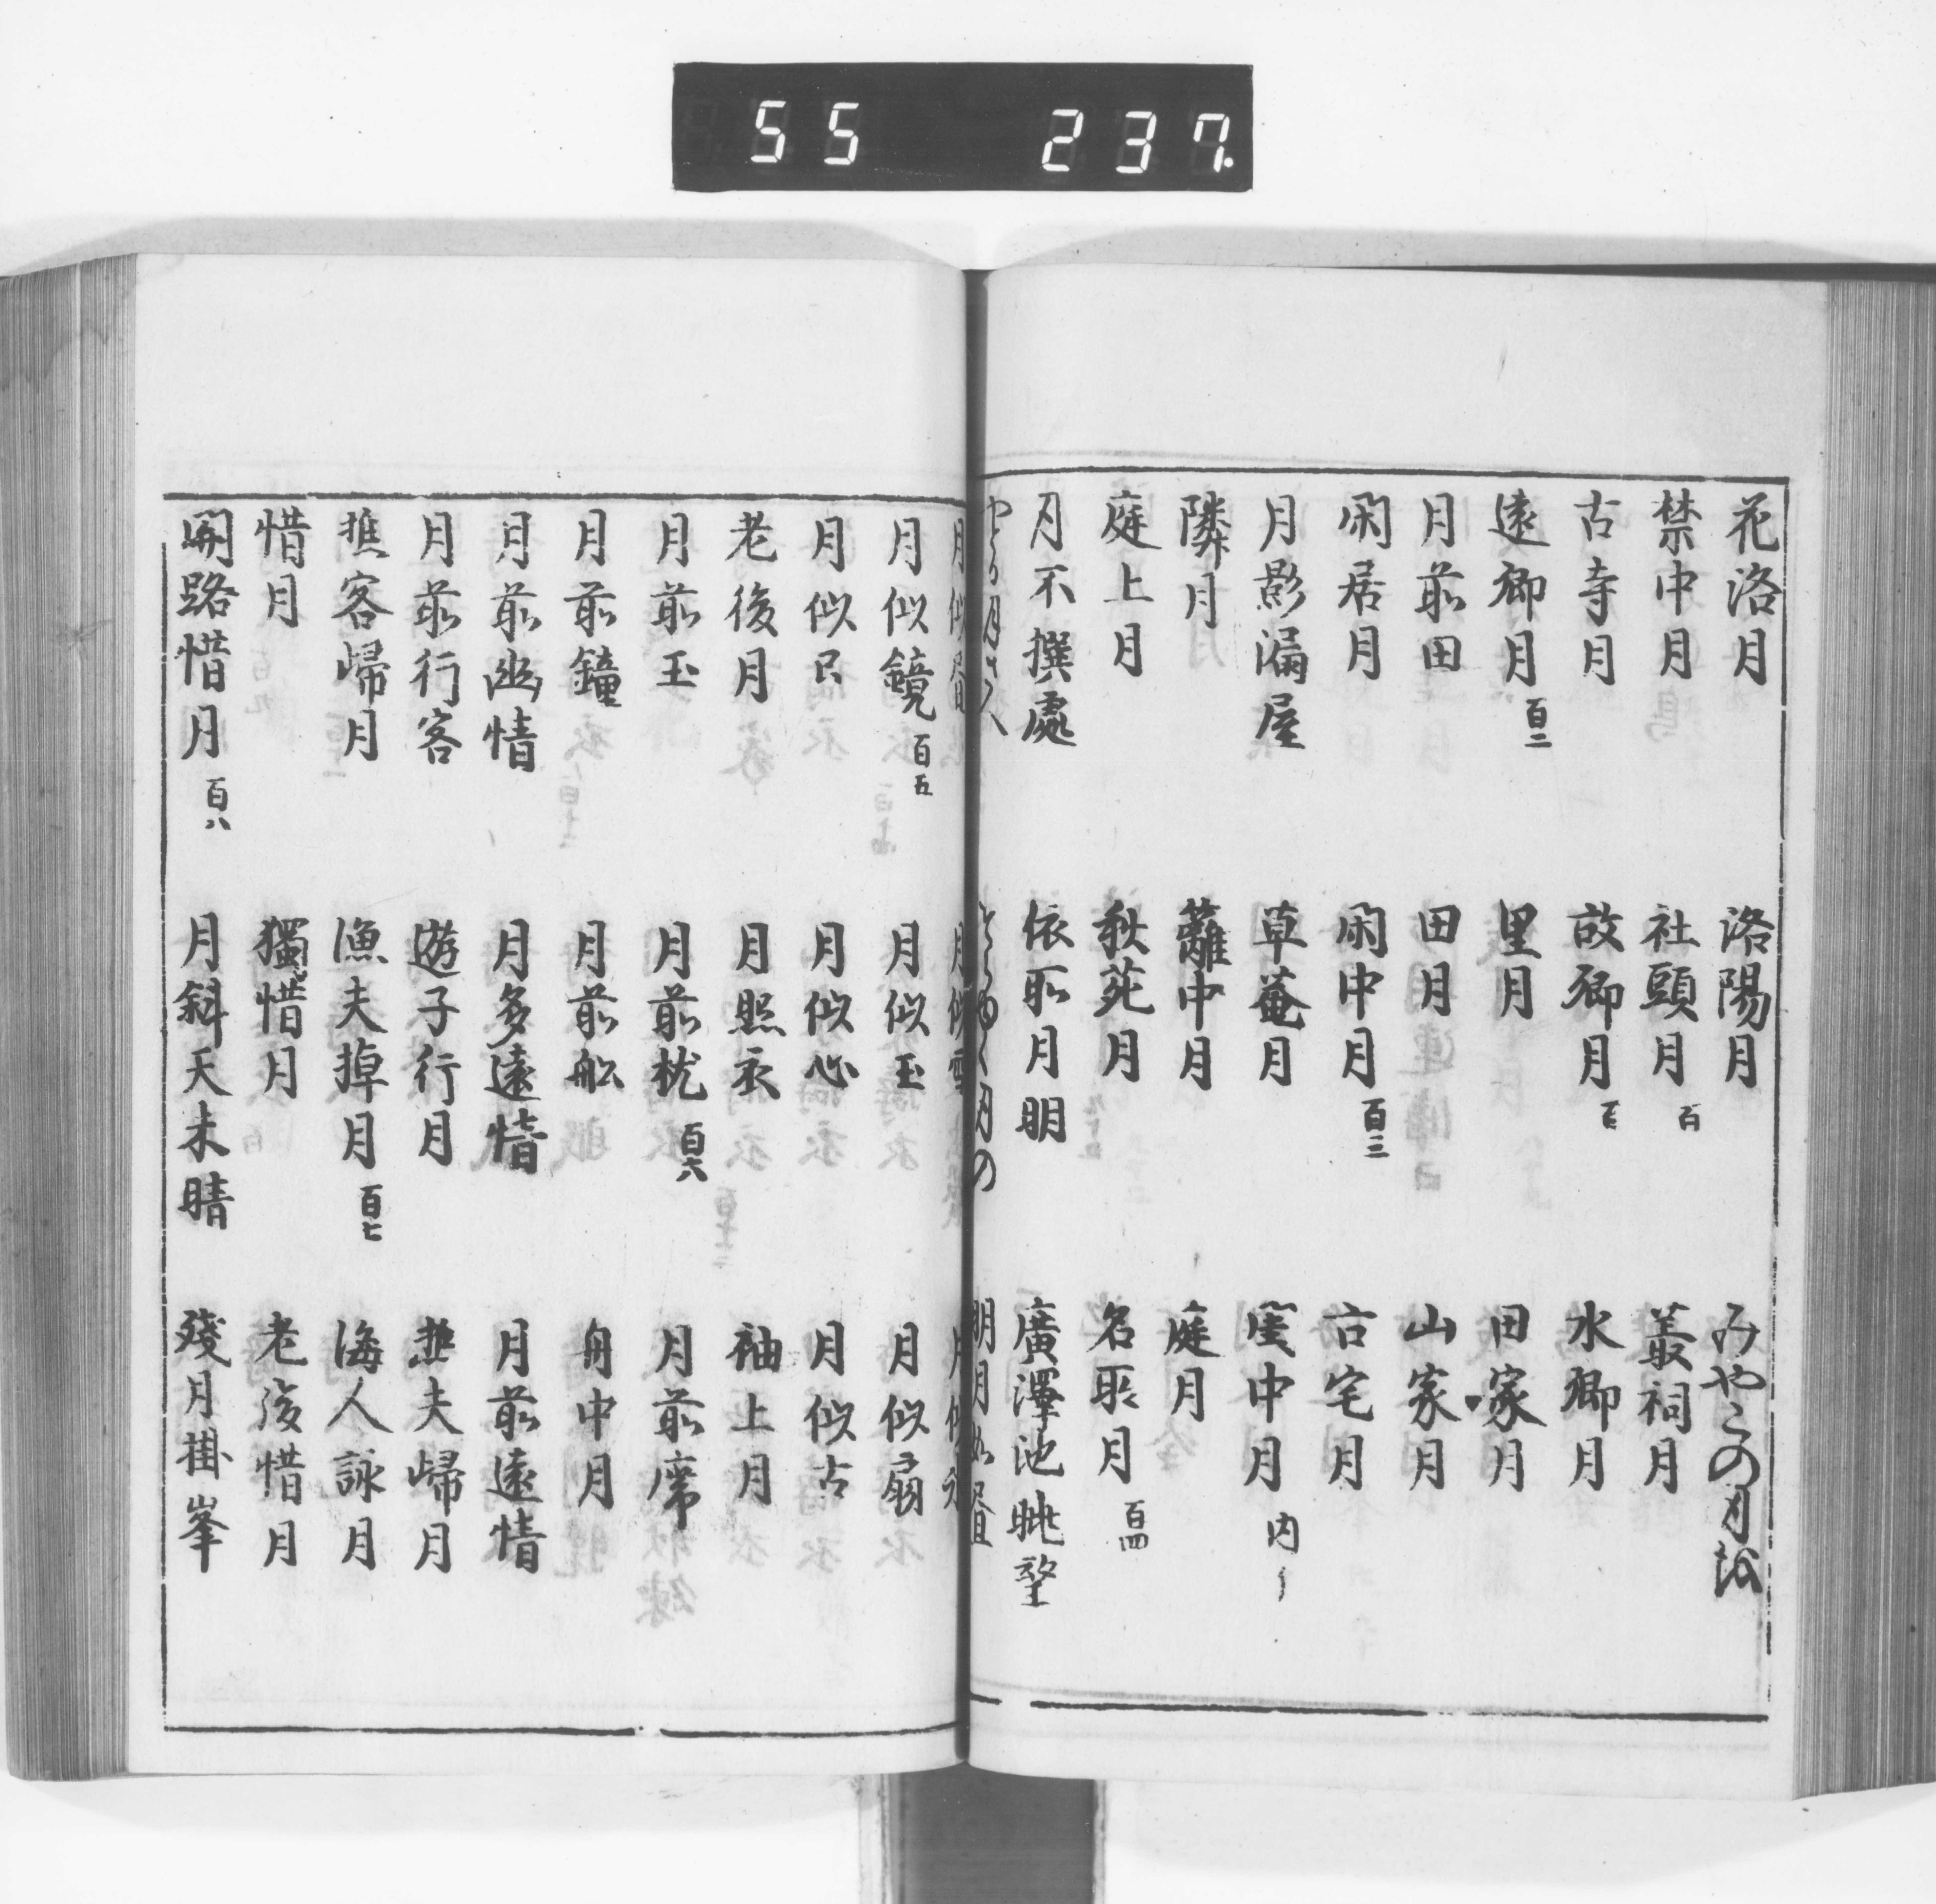 55 237
花洛月 洛陽月 みやこの月
禁中月 社頭月 百 叢祠月
古寺月 故郷月 水郷月
遠郷月 百二 里月 田家月
月前田 田月 山家月
閑居月 閑中月 百三 古宅月
月影漏屋 草菴月 窓中月 内
隣月 籬中月 庭月
庭上月 秋苑月 名所月 百四
月不撰處 依所月明 廣澤池眺望
明月如
月似 月似雪 月似
月似鏡 百五 月似玉 月似扇
月似 月似心 月似古
老後月 月照衣 袖上月
月前玉 月前枕 百六 月前席
月前鐘 月前舩 舟中月
月前幽情 月多遠情 月前遠情
月前行客 遊子行月 樵夫歸月
樵客歸月 漁夫掉月 百七 海人詠月
惜月 獨惜月 老後惜月
開路惜月 百八 月斜天未晴 殘月掛峯